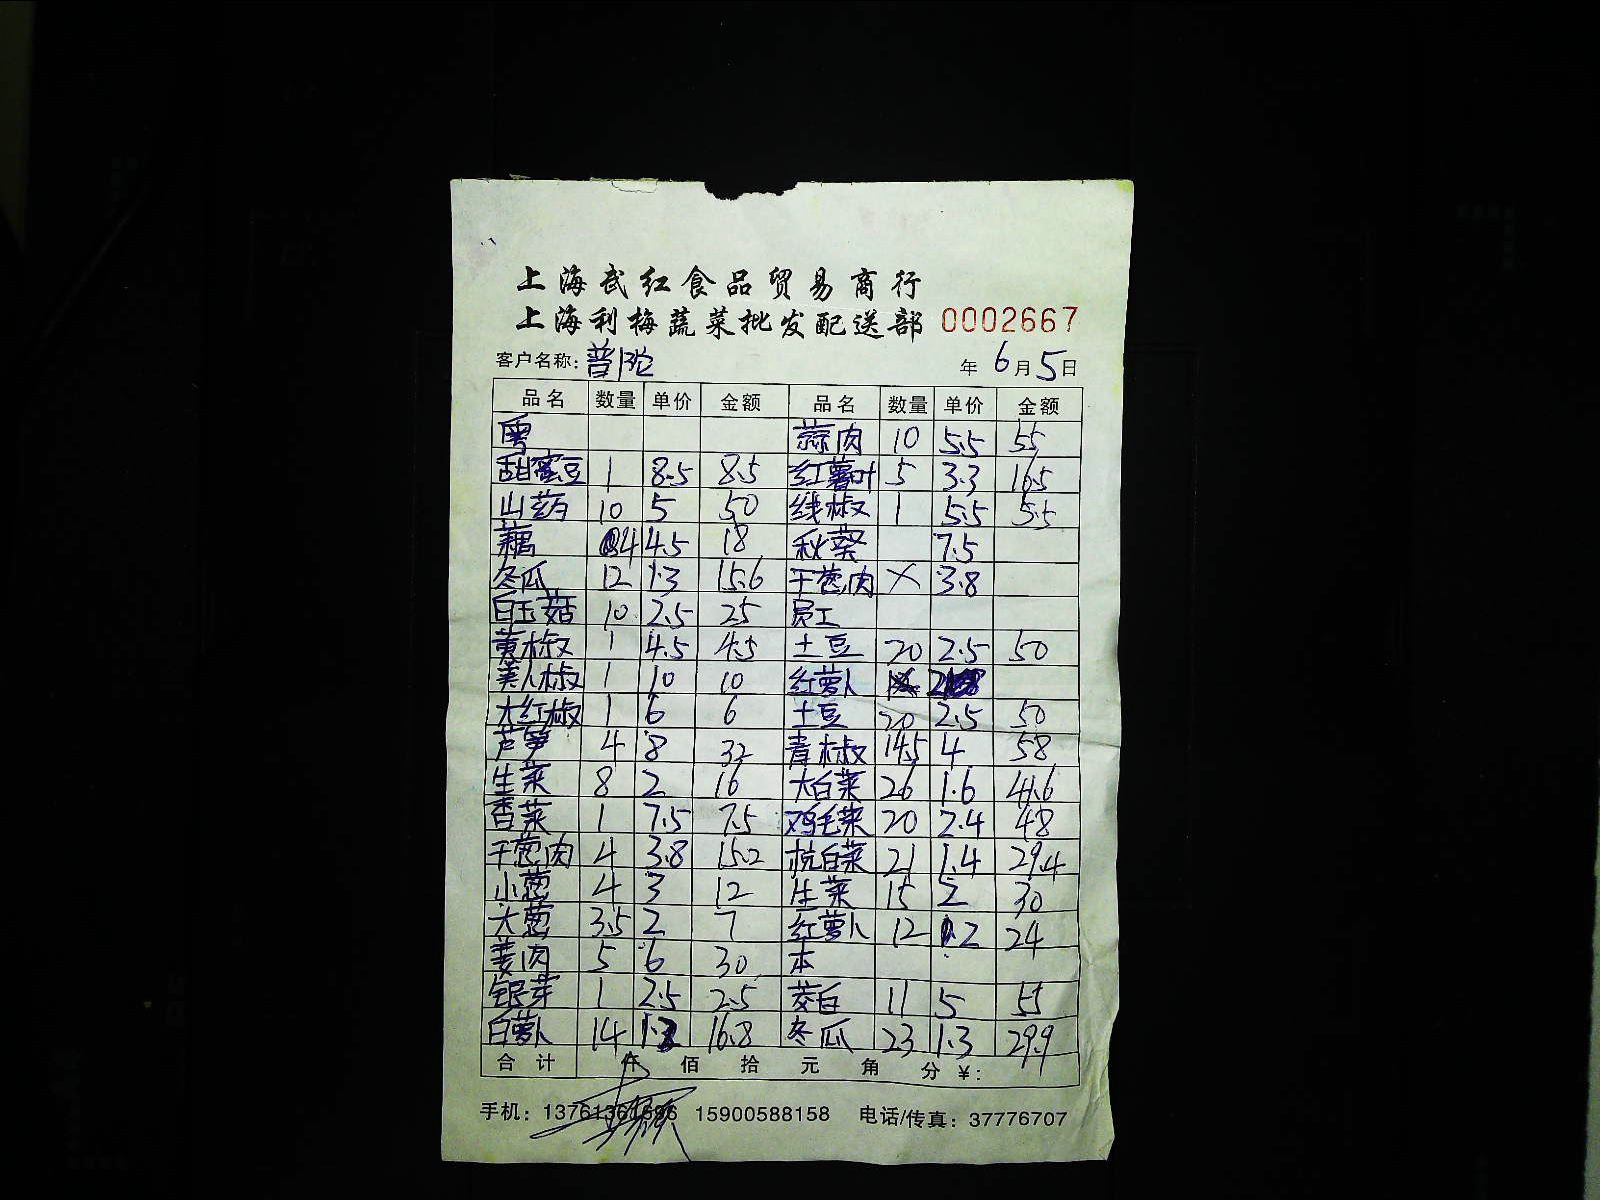 上海武红食品贸易商行
上海利梅蔬菜批发配送部 0002667
客户名称：普陀 年 6月5日
品名 数量 单价 金额 品名 数量 单价 金额
粤 蒜肉 10 5.5 55
甜蜜豆 1 8.5 8.5 红薯叶 5 3.3 16.5
山药 10 5 50 线椒 1 5.5 5.5
藕 4 4.5 18 秋葵 7.5
冬瓜 12 1.3 15.6 干葱肉 × 3.8
白玉菇 10 2.5 25 员工
黄椒 1 4.5 4.5 土豆 20 2.5 50
美人椒 1 10 10 红萝卜
大红椒 1 6 6 土豆 20 2.5 50
芦笋 4 8 32 青椒 14.5 4 58
生菜 8 2 16 大白菜 26 1.6 41.6
香菜 1 7.5 7.5 鸡毛菜 20 2.4 48
干葱肉 4 3.8 15.2 杭白菜 21 1.4 29.4
小葱 4 3 12 生菜 15 2 30
大葱 3.5 2 7 红萝卜 12 2 24
姜肉 5 6 30 本
银芽 1 2.5 2.5 茭白 11 5 55
白萝卜 14 1.2 16.8 冬瓜 23 1.3 29.9
合计 仟 佰 拾 元 角 分 ¥：
手机：13761361696 15900588158 电话/传真：37776707